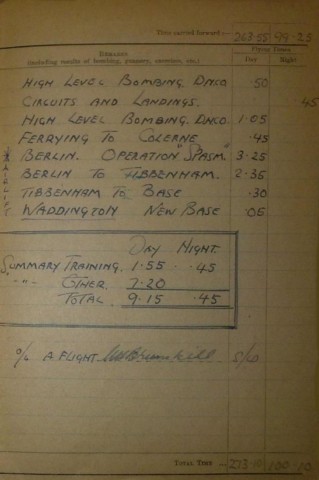 Time carried forward :— 263·55 99·25
REMARKS
(including results of bombing, gunnery, exercises, etc.)
FLYING TIMES
Day Night
HIGH LEVEL BOMBING. DNCO. ·50
CIRCUITS AND LANDINGS. ·45
HIGH LEVEL BOMBING. DNCO. 1·05
FERRYING TO COLERNE. ·45
BERLIN. OPERATION "SPASM." 3·25
BERLIN TO TIBBENHAM. 2·35
TIBBENHAM TO BASE ·30
WADDINGTON NEW BASE ·05
DAY NIGHT.
SUMMARY TRAINING. 1·55 ·45
" " OTHER. 7·20
TOTAL. 9·15 ·45
O/C A FLIGHT S/L
TOTAL TIME 273·10 100·10